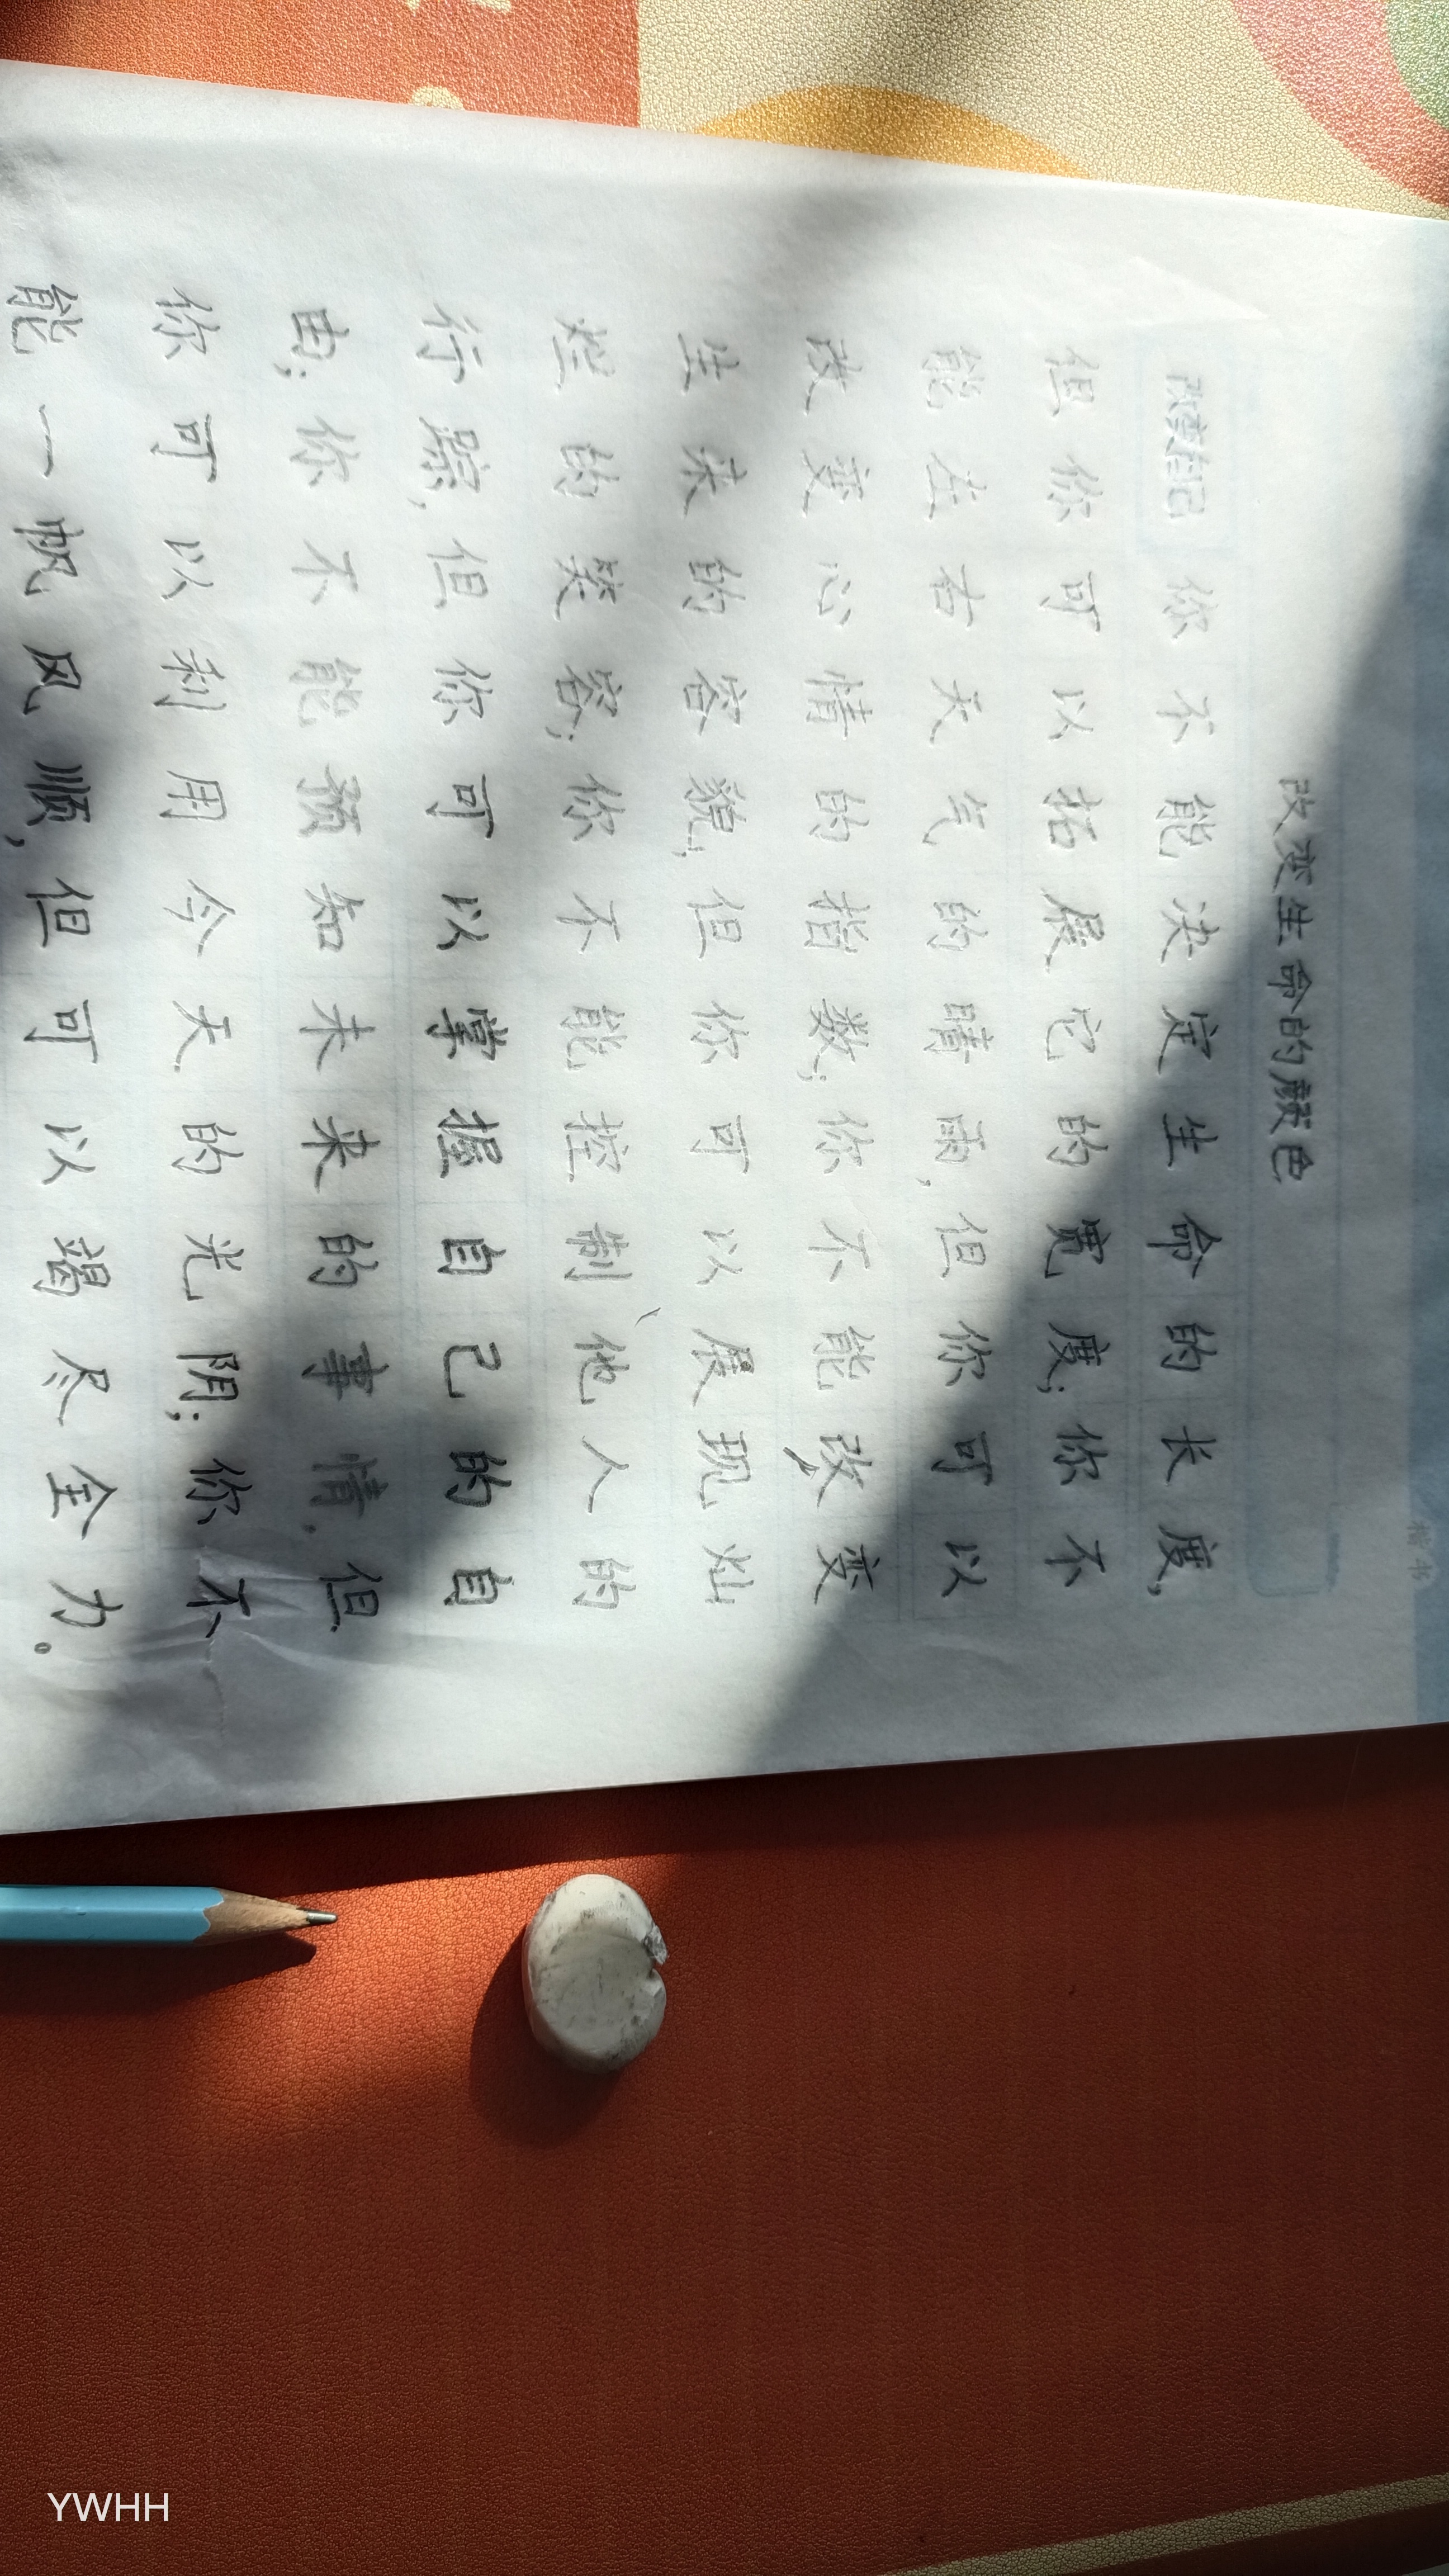 改变生命的颜色
你不能决定生命的长度,
但你可以拓展它的宽度;你不
能左右天气的晴雨,但你可以
改变心情的指数;你不能改变
生来的容貌,但你可以展现灿
烂的笑容;你不能控制他人的
行踪,但你可以掌握自己的自
由;你不能预知未来的事情,但
你可以利用今天的光阴;你不
能一帆风顺,但可以竭尽全力。
YWHH